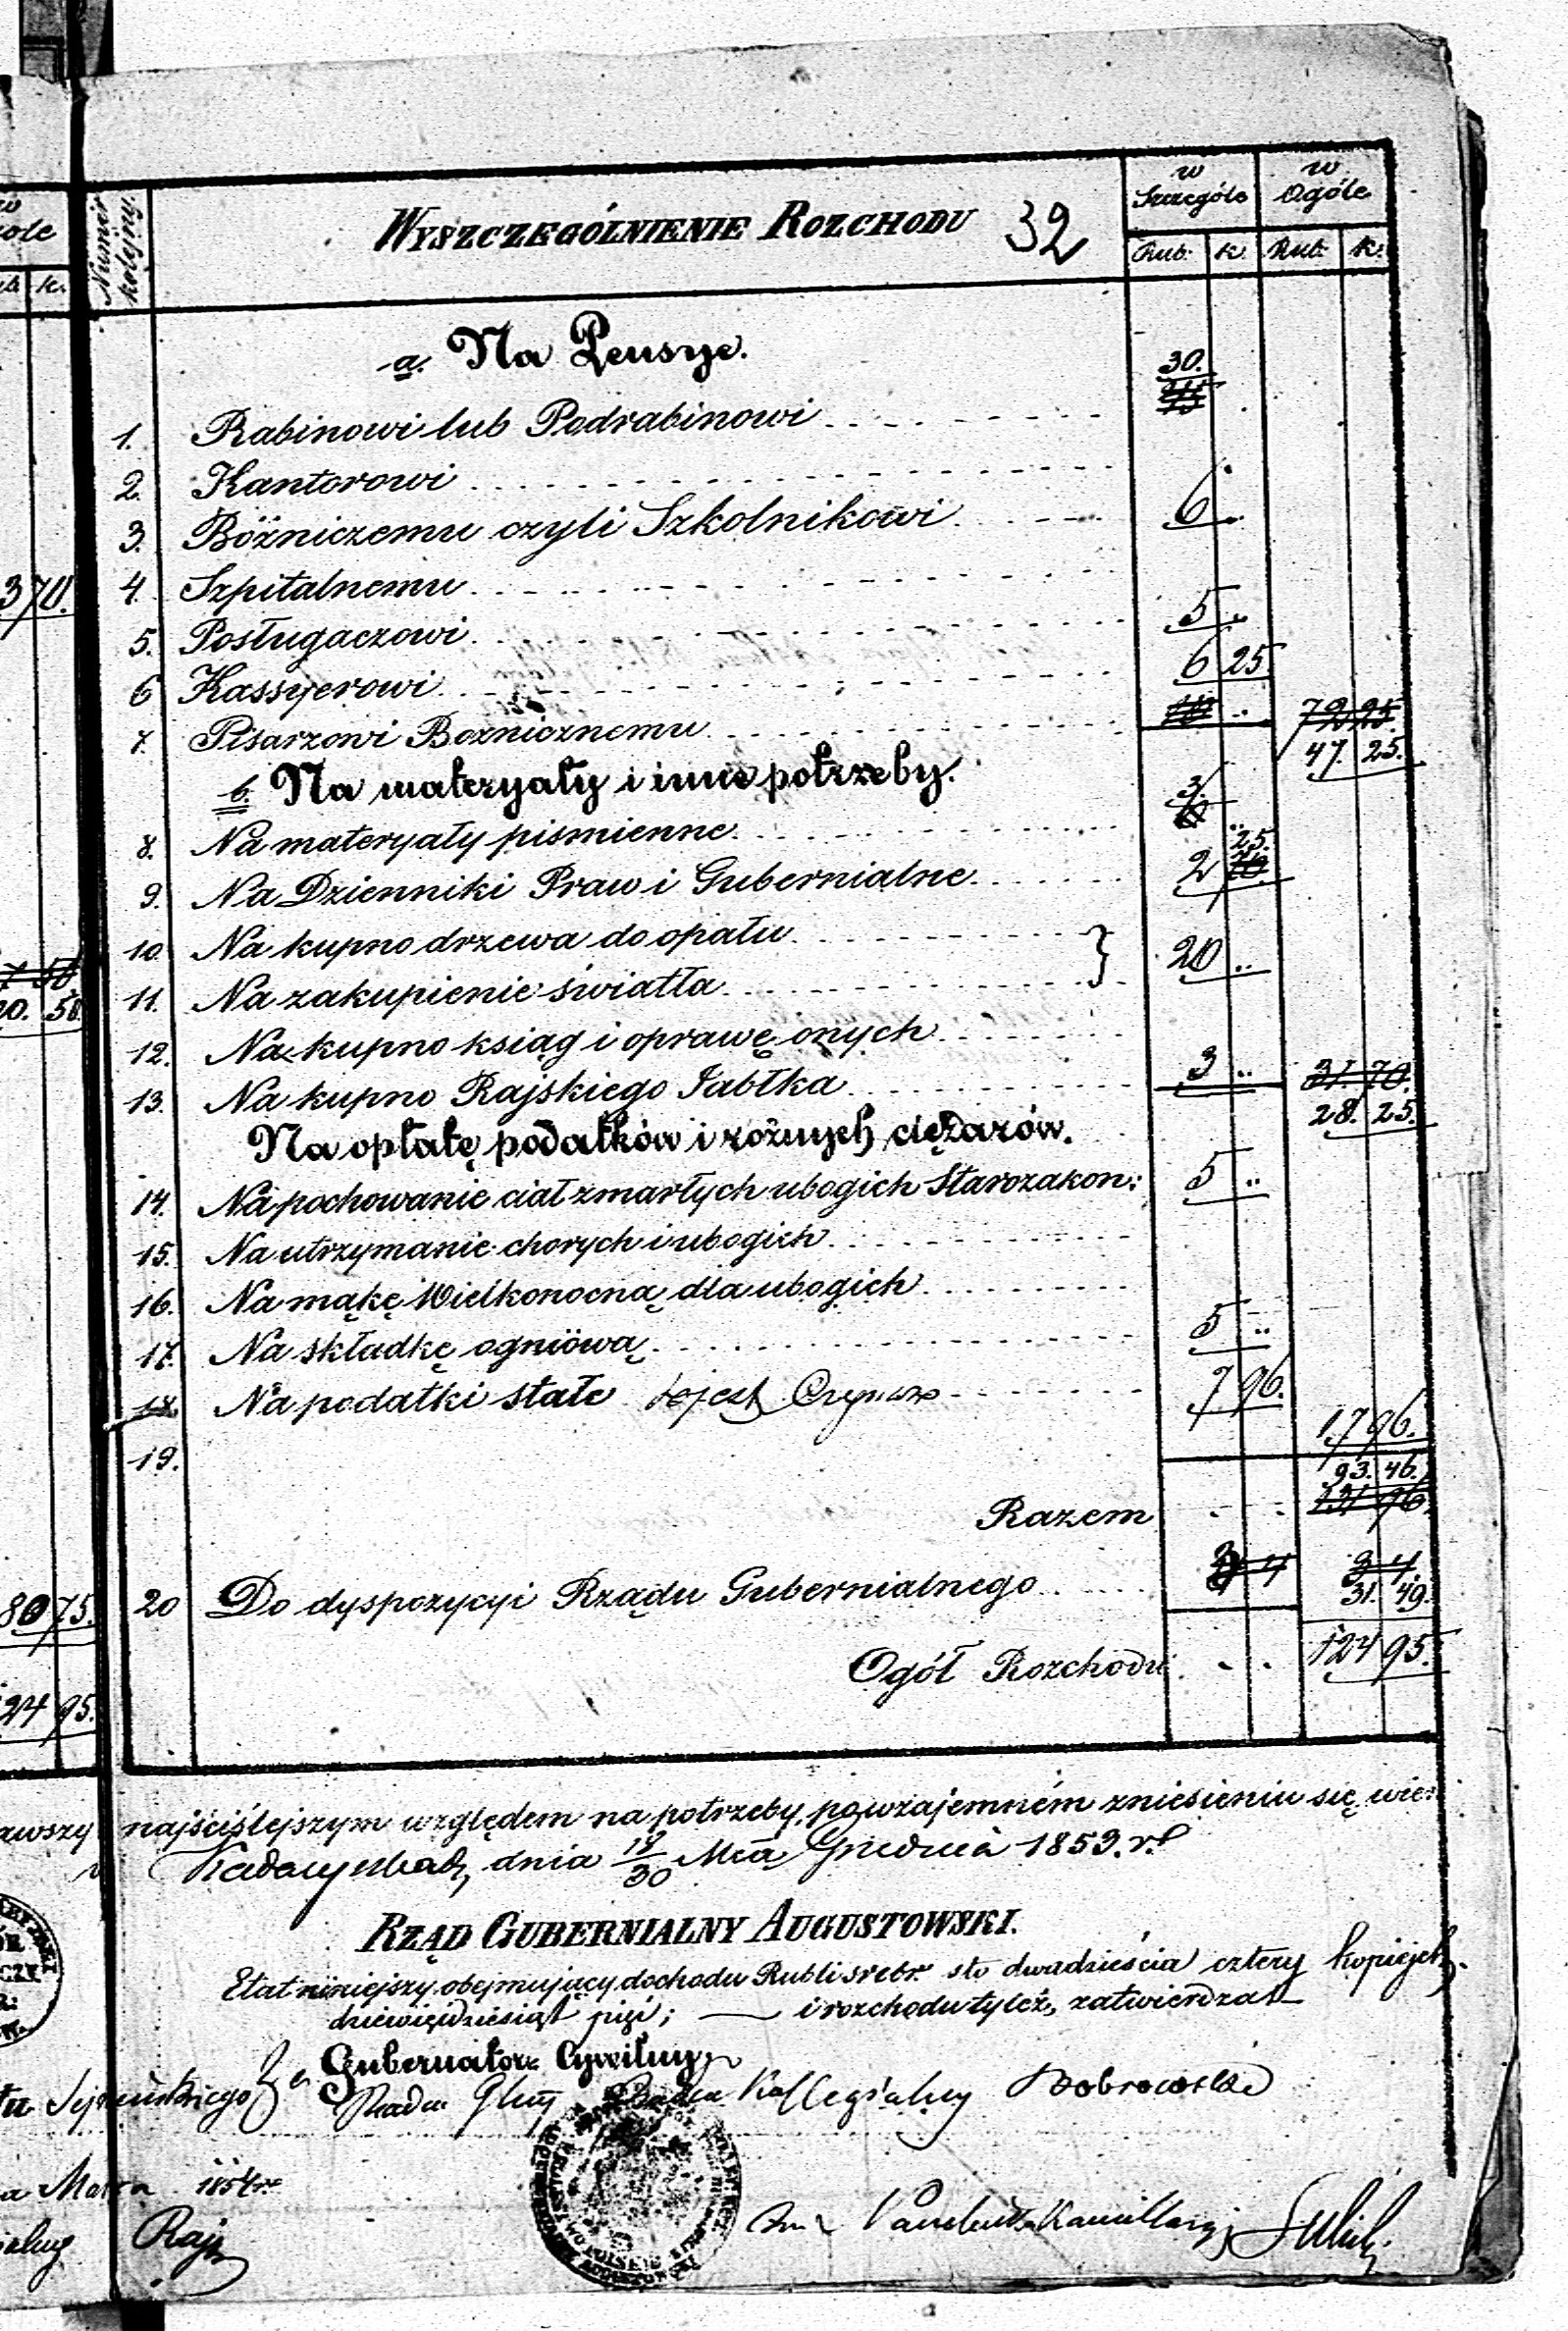 w Szczególe
w Ogóle
Numer kolejny.
WYSZCZEGÓLNIENIE ROZCHODU 32
Rub. k. Rub. k.
a. Na Pensye.
30.
1. Rabinowi lub Podrabinowi
2. Kantorowi
3. Bóżniczemu czyli Szkolnikowi 6 ..
4. Szpitalnemu
5. Posługaczowi 5 ..
6 Kassyerowi 6 25
7. Pisarzowi Boznicznemu .. 72 25.
47. 25.
b. Na materyały i inne potrzeby.
3.
8. Na materyały piśmienne 6 ..
25.
9. Na Dzienniki Praw i Gubernialne 2 70.
10 Na kupno drzewa do opału } 20 ..
11. Na zakupienie światła
12. Na kupno ksiąg i oprawę onych
13. Na kupno Rajskiego Jabłka 3 .. 31. 70.
28. 25.
Na opłatę podatków i rożnych ciężarów.
14. Na pochowanie ciał zmarłych ubogich Starozakon: 5 ..
15. Na utrzymanie chorych i ubogich
16. Na mąkę Wielkonocną dla ubogich
17. Na składkę ogniową 5 ..
18. Na podatki stałe to jest Czynsz 7 96.
17 96.
19.
93. 46.
Razem 121 96.
20 Do dyspozycyi Rządu Gubernialnego
31. 49.
Ogół Rozchodu 124 95.
370.
20. 58.
80 75.
24 95.
najściślejszym względem na potrzeby, po wzajemném zniesieniu się
dnia 18/30 Mca Grudnia 1853. r.
RZĄD GUBERNIALNY AUGUSTOWSKI.
Etat niniejszy, obejmujący dochodu Rubli srebr. sto dwadzieścia cztery kopiejek
dziewięćdziesiąt pięć; i rozchodu tyleż, zatwierdza
Gubernator Cywilny
Radca Kollegialny Dobrowolski
1854 r.